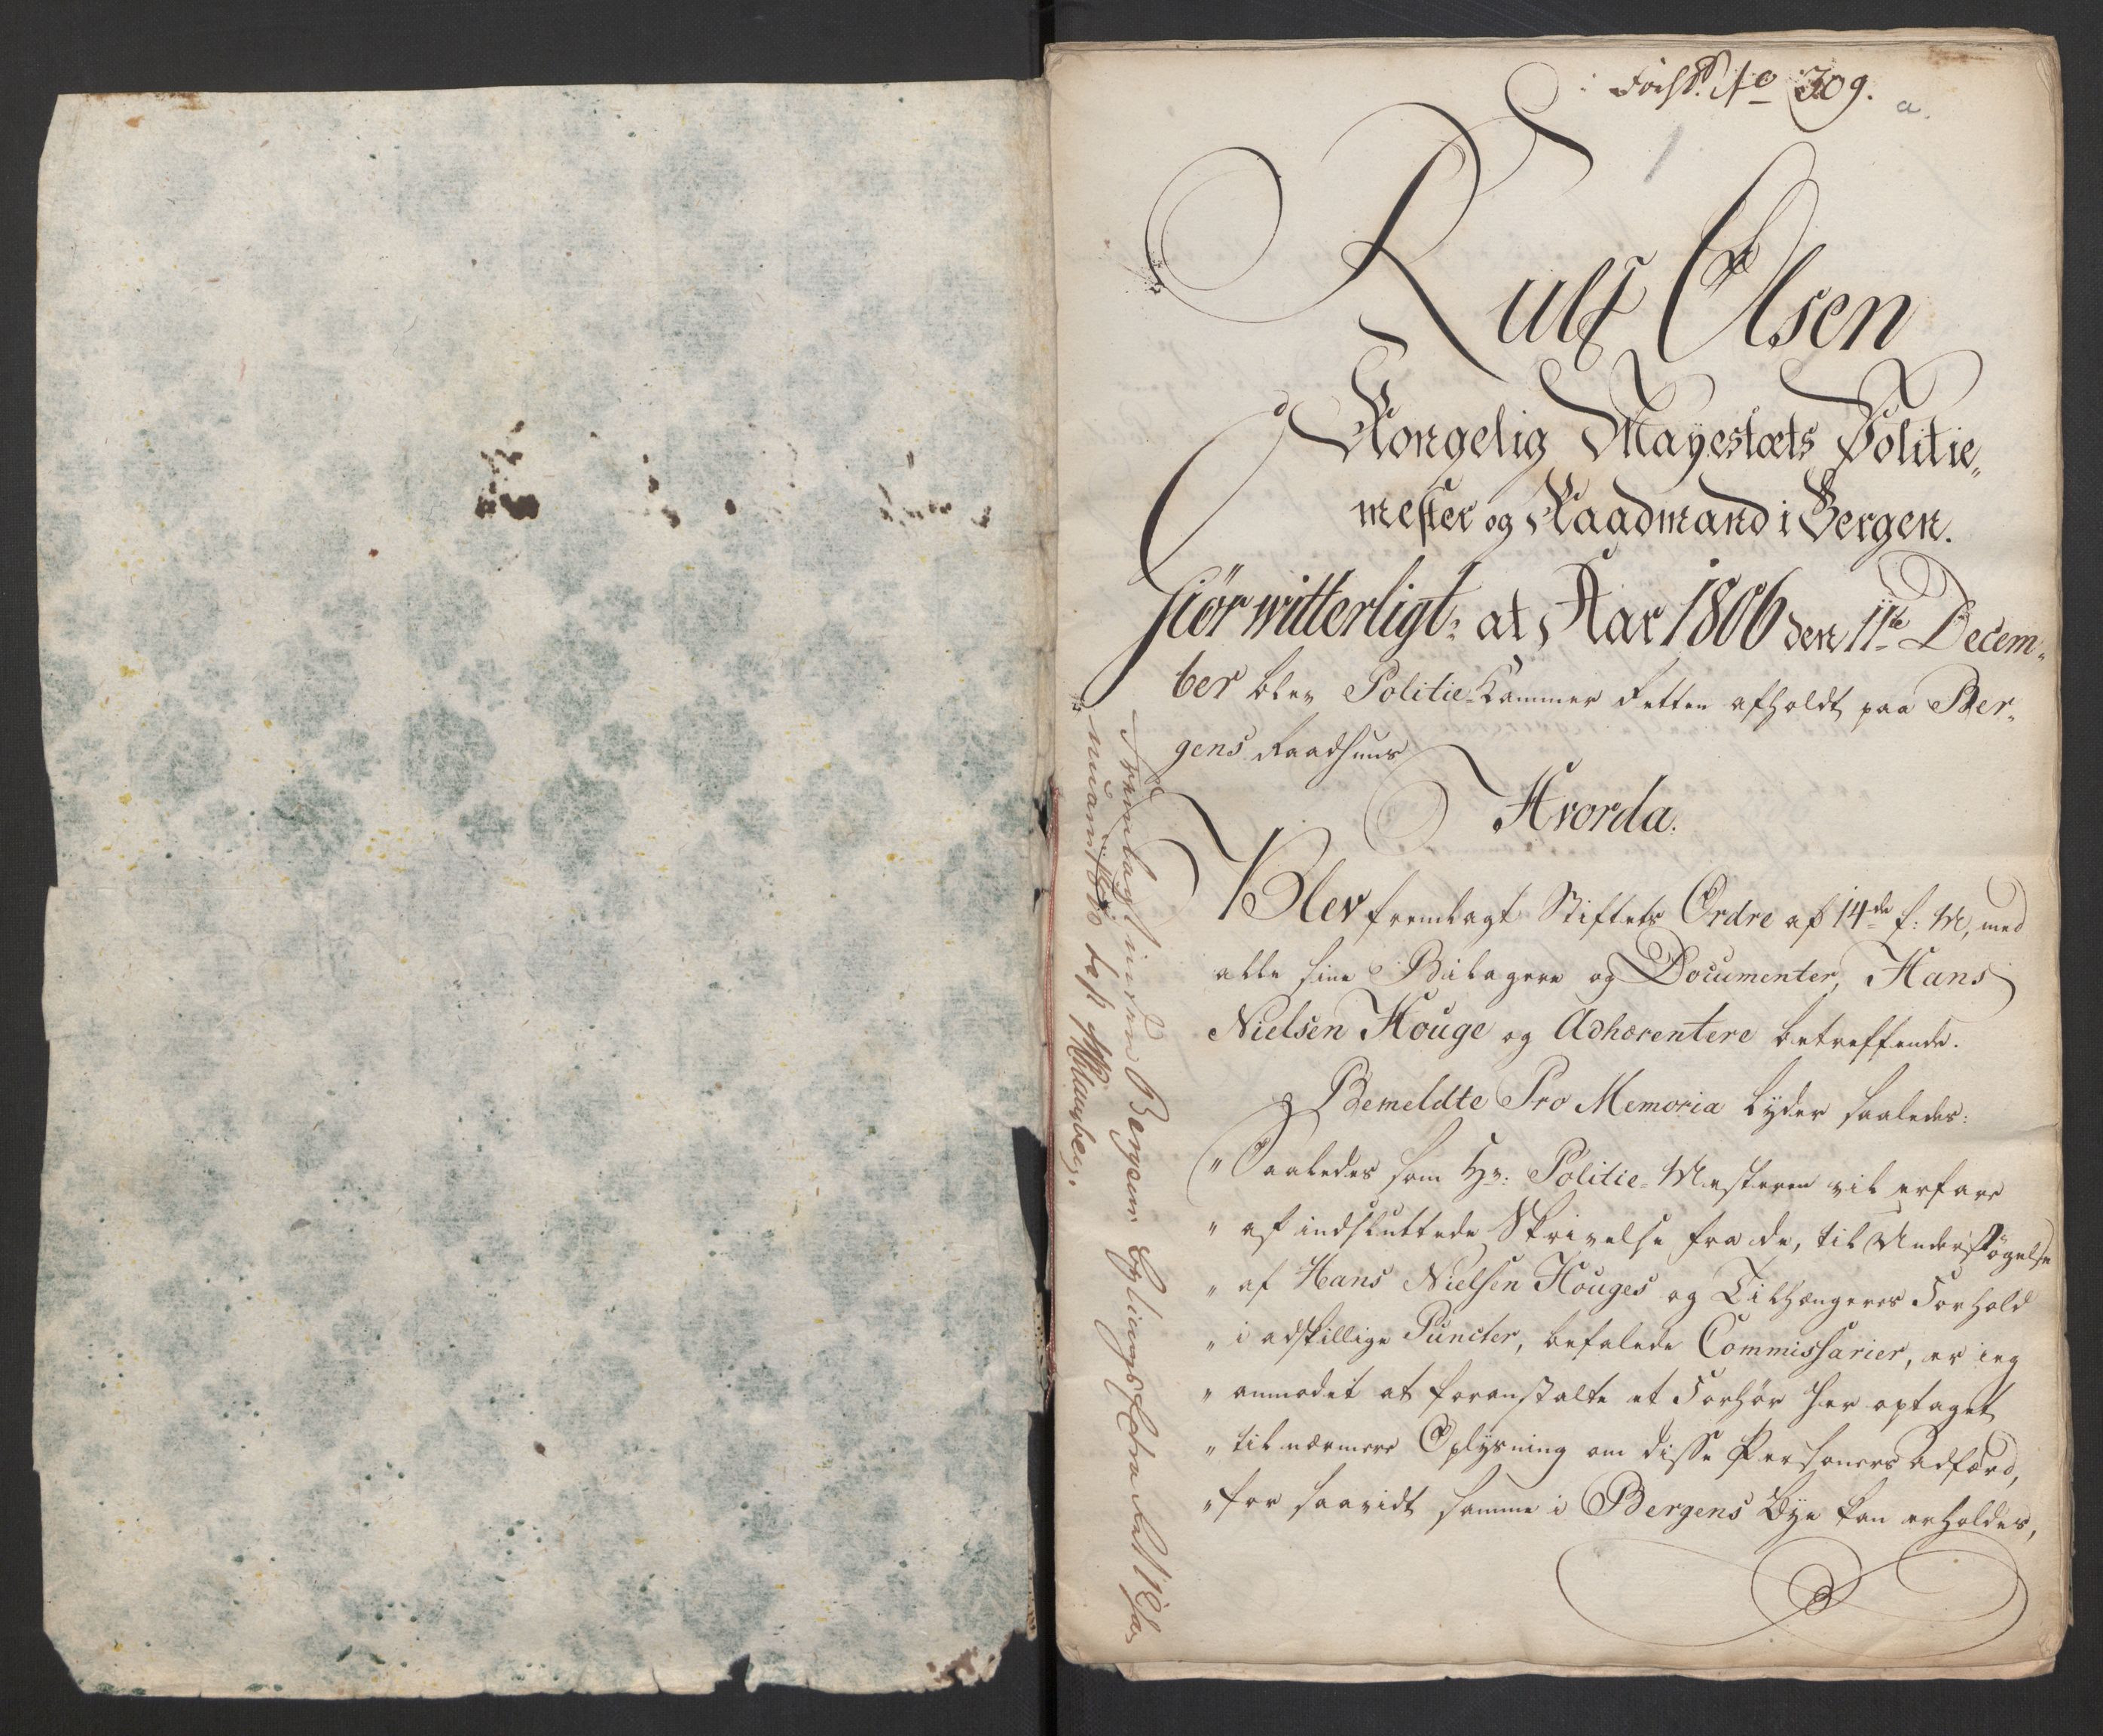 Forh. No 309.
a.
1
Rulf Olsen
Kongelig Mayestæts Politie„
mester og Raadmand i Bergen.
Giör witterligt: at Aar 1806 den 11te Decem„
ber blev Politie-Kammer Retten afholdt paa Ber„
gens Raadhuus
Hvorda.
Blev fremlagt Stiftets Ordre af 14de f: M, med
alle sine Bilagere og Documenter, Hans
Nielsen Houge og Adhærentere betreffende.
Bemeldte Pro Memoria lyder saaledes:
„Saaledes som Hr: Politie-Mesteren vil erfare
„ af indsluttede Skrivelse fra de, til Undersøgelse
„ af Hans Nielsen Houges og Tilhængeres Forhold
„ i adskillige Puncter, befalede Commissarier, er ieg
„ anmodet at foranstalte et Forhør her optaget
„ til nærmere Oplysning om disse Personers Adfærd,
„for saavidt samme i Bergens Bye kan erholdes,
Fremlagt inden Bergens Bytings Extra Ret